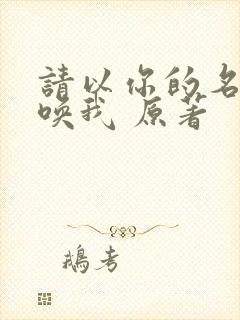 請以你的名
喚我 原著
鵝考